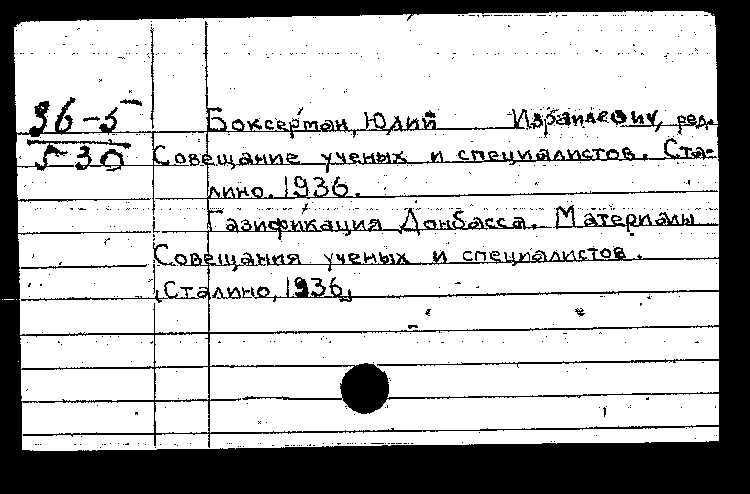 36-5
530
Боксерман, Юлий Израилевич, ред.
Совещание ученых и специалистов. Ста-
лино. 1936.
Газификация Донбасса. Материалы
Совещания ученых и специалистов.
[Сталино, 1936]